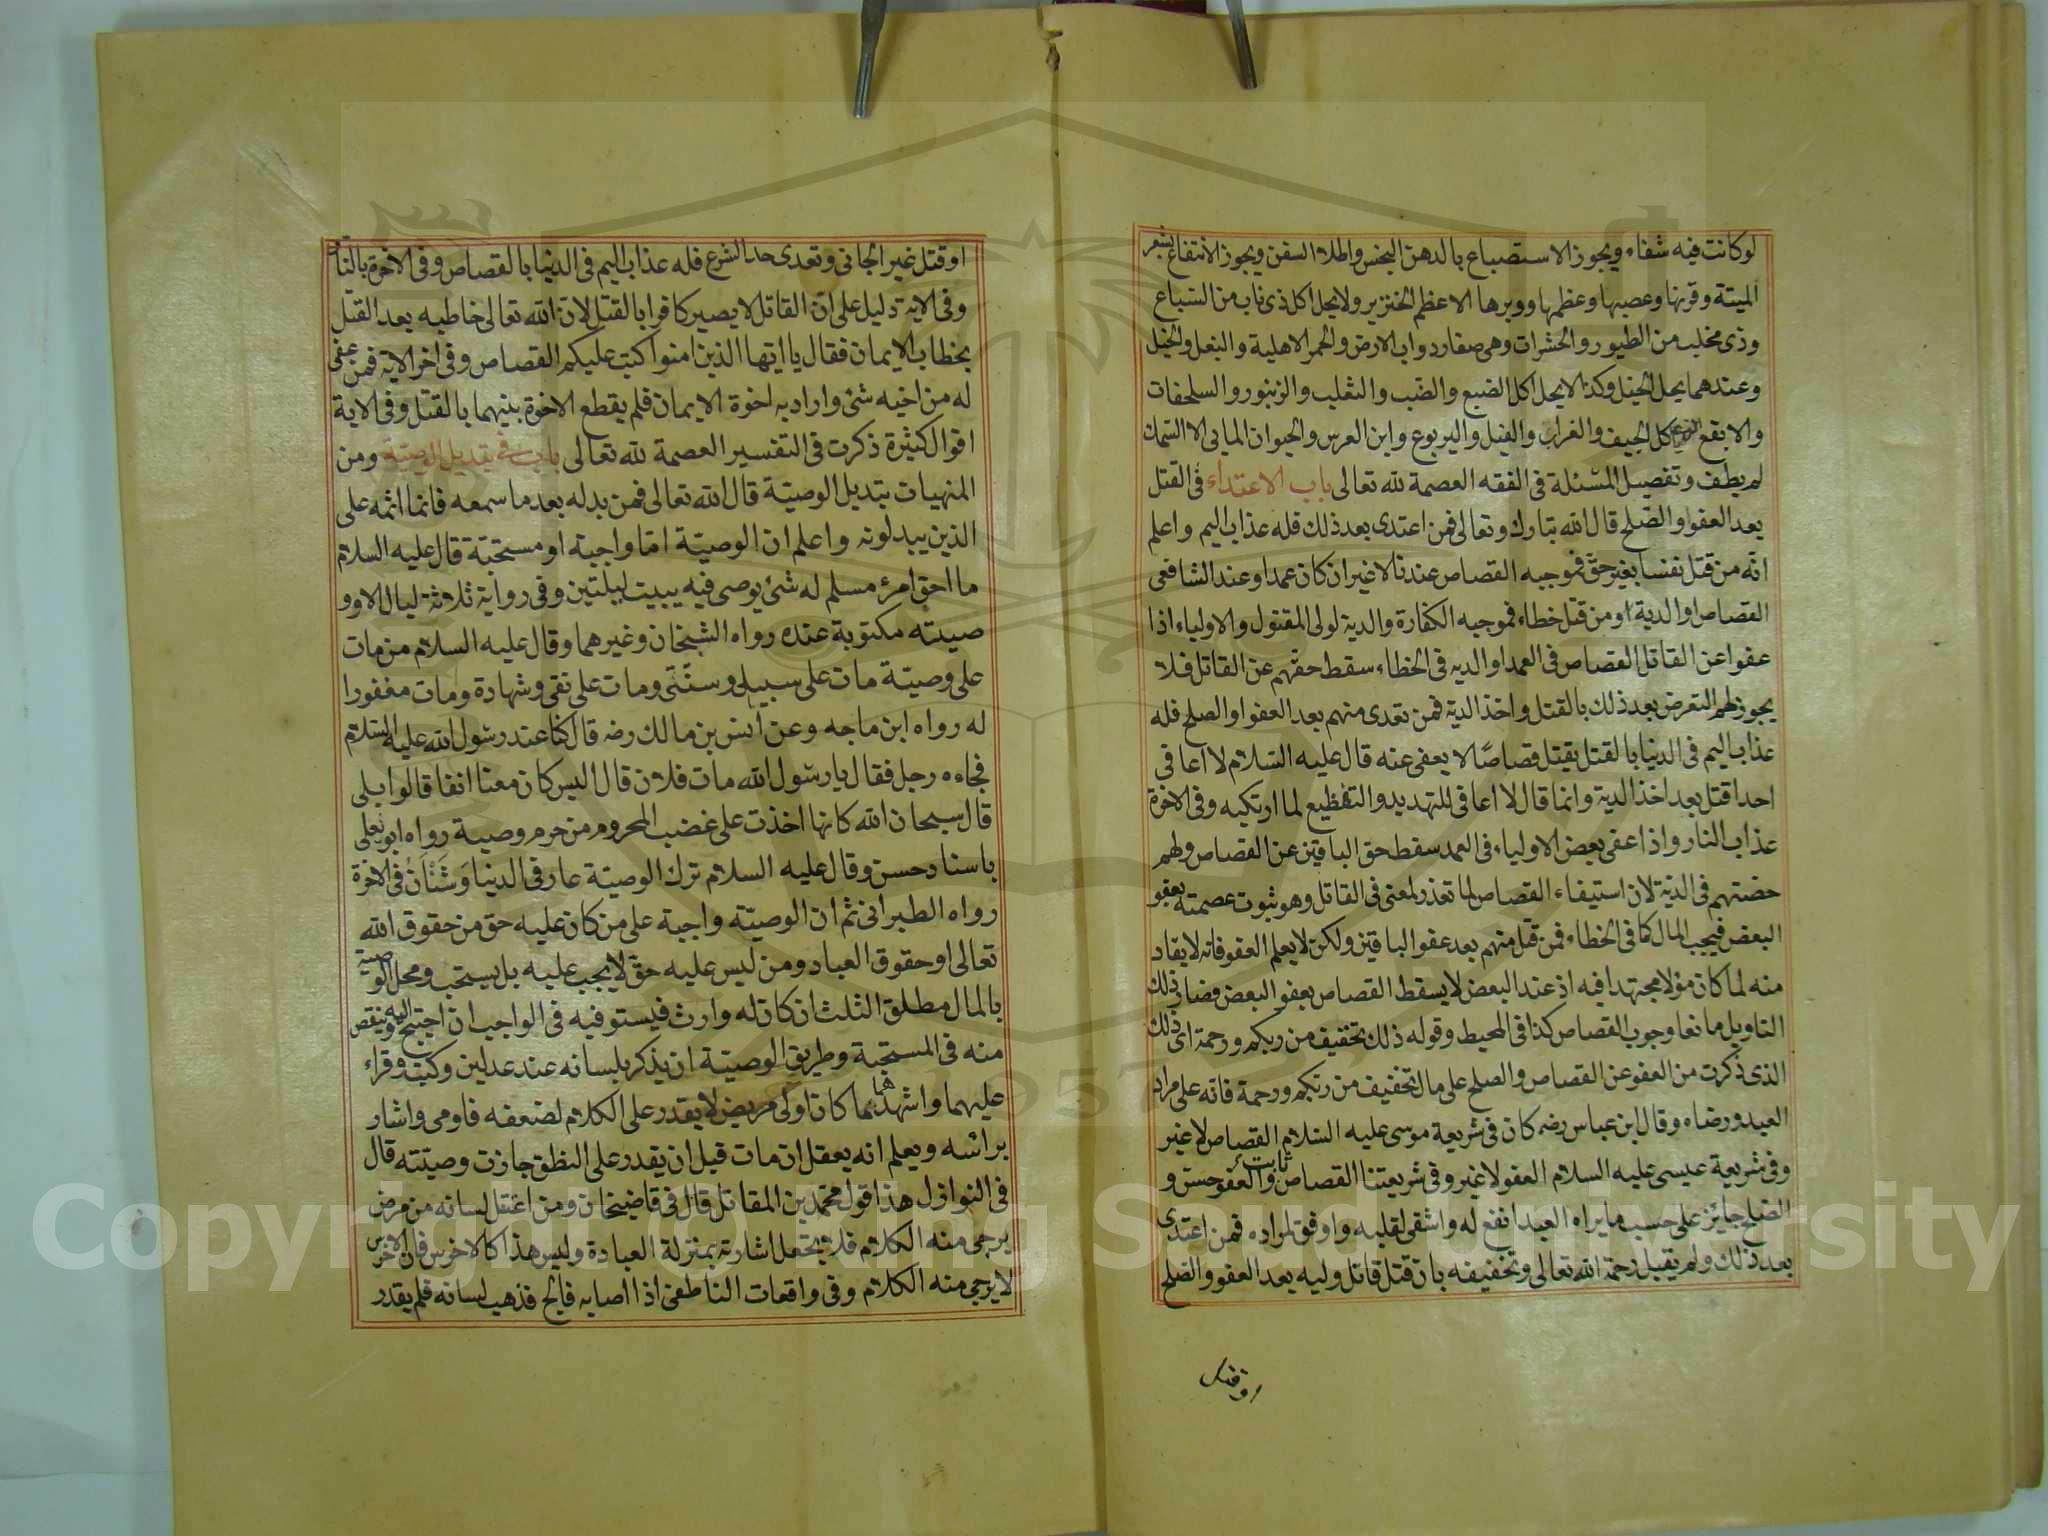 لو كانت فيه شفاء ويجوز الاستصباع بالدهن النجس واطلاء السفن ويجوز الانتفاع بشعر
الميتة وقرنها وعصبها وعظمها ووبرها الا عظم الخنزير ولا يحل اكل ذى ناب من السباع
وذى مخلب من الطيور والحشرات وهى صغار دواب الارض والحمر الاهلية والبغل والخيل
وعندهما يحل الخيل وكذا لا يحل اكل الضبع والضب والثعلب والزنبور والسلحفات
والابقع اكل الجيف والغراب والفيل واليربوع وابن العرس والحيوان المايى الا السمك
لم يطف وتفصيل المسئلة فى الفقه العصمة لله تعالى باب الاعتداء فى القتل
بعد العفو والصلح قال الله تبارك وتعالى فمن اعتدى بعد ذلك فله عذاب اليم واعلم
انه من قتل نفسا بغير حق فموجبه القصاص عندنا لا غير ان كان عمدا وعند الشافعى
القصاص او الدية او من قتل خطاء فموجبه الكفارة والدية لولى المقتول والاولياء اذا
عفوا عن القاتل القصاص فى العمد او الديه فى الخطاء سقط حقهم عن القاتل فلا
يجوز لهم التعرض بعد ذلك بالقتل واخذ الدية فمن تعدى منهم بعد العفو او الصلح فله
عذاب اليم فى الدنيا بالقتل يقتل قصاصًا لا يعفى عنه قال عليه السلام لا اعافى
احدا قتل بعد اخذ الدية وانما قال لا اعافى للتهديد والتفظيع لما ارتكبه وفى الاخرة
عذاب النار واذا عفى بعض الاولياء فى العمد سقط حق الباقين عن القصاص ولهم
حصتهم فى الدية لان استيفاء القصاص لما تعذر لمعنى فى القاتل وهو ثبوت عصمته بعفو
البعض فيجب المال كما فى الخطاء فمن قتل منهم بعد عفو الباقين ولكن لا يعلم العفو فانه لا يقاد
منه لما كان مؤلا مجتهدا فيه اذ عند البعض لا يسقط القصاص بعفو البعض فصار ذلك
التاويل مانعا وجوب القصاص كذا فى المحيط وقوله ذلك تخفيف من ربكم ورحمة اى ذلك
الذى ذكرت من العفو عن القصاص والصلح على مال تخفيف من ربكم ورحمة فانه على مراد
العبد ورضاه وقال ابن عباس رضه كان فى شريعة موسى عليه السلام القصاص لا غير
وفى شريعة عيسى عليه السلام العفو لا غير وفى شريعتنا القصاص ثابت والعفو حسن و
الصلح جايز على حسب ما يراه العبد انفع له واشفى لقلبه واوفق لمراده فمن اعتدى
بعد ذلك ولم يقبل رحمة الله تعالى وتخفيفه بان قتل قاتل وليه بعد العفو والصلح
او قتل
او قتل غير الجانى وتعدى حد الشرع فله عذاب اليم فى الدنيا بالقصاص وفى الاخرة بالنار
وفى الاية دليل على ان القاتل لا يصير كافرا بالقتل لان الله تعالى خاطبه بعد القتل
بخطاب الايمان فقال يا ايها الذين امنوا كتب عليكم القصاص وفى اخر الاية فمن عفى
له من اخيه شئ واراد به اخوة الايمان فلم يقطع الاخوة بينهما بالقتل وفى الاية
اقوال كثيرة ذكرت فى التفسير العصمة لله تعالى باب فى تبديل الوصية ومن
المنهيات تبديل الوصية قال الله تعالى فمن بدله بعد ما سمعه فانما اثمه على
الذين يبدلونه واعلم ان الوصية اما واجبة او مستحبة قال عليه السلام
ما احق امرئ مسلم له شئ يوصى فيه يبيت ليلتين وفى رواية ثلاثة ليال الا وو
صيته مكتوبة عنده رواه الشيخان وغيرهما وقال عليه السلام من مات
على وصية مات على سبيل وسنتى ومات على تقى وشهادة ومات مغفورا
له رواه ابن ماجه وعن انس بن مالك رضه قال كنا عند رسول الله عليه السلام
فجاءه رجل فقال يا رسول الله مات فلان قال اليس كان معنا انفا قالوا بلى
قال سبحان الله كانها اخذت على غضب المحروم من حرم وصية رواه ابو يعلى
باسناد حسن وقال عليه السلام ترك الوصية عار فى الدنيا وَشَنَان فى الاخرة
رواه الطبرانى ثم ان الوصية واجبة على من كان عليه حق من حقوق الله
تعالى او حقوق العباد ومن ليس عليه حق لا يجب عليه بل يستحب ومحل الوصية
بالمال مطلق الثلث ان كان له وارث فيستوفيه فى الواجب ان احتيج اليه وينقص
منه فى المستحبة وطريق الوصية ان يذكر بلسانه عند عدلين وكتب وقراء
عليهما واشهدهما كان اولى مريض لا يقدر على الكلام لضعفه فاومى واشار
براسه ويعلم انه يعقل ان مات قبل ان يقدر على النطق جازت وصيته قال
فى النوازل هذا قول محمد بن المقاتل قال فى قاضيخان ومن اعتقل لسانه من مرض
يرجى منه الكلام فلا يجعل اشارته بمنزلة العبادة وليس هذا كالاخرس فان الاخرس
لا يرجى منه الكلام وفى واقعات الناطفى اذا اصابه فالج فذهب لسانه فلم يقدر
Copyright © King Saud University
1957